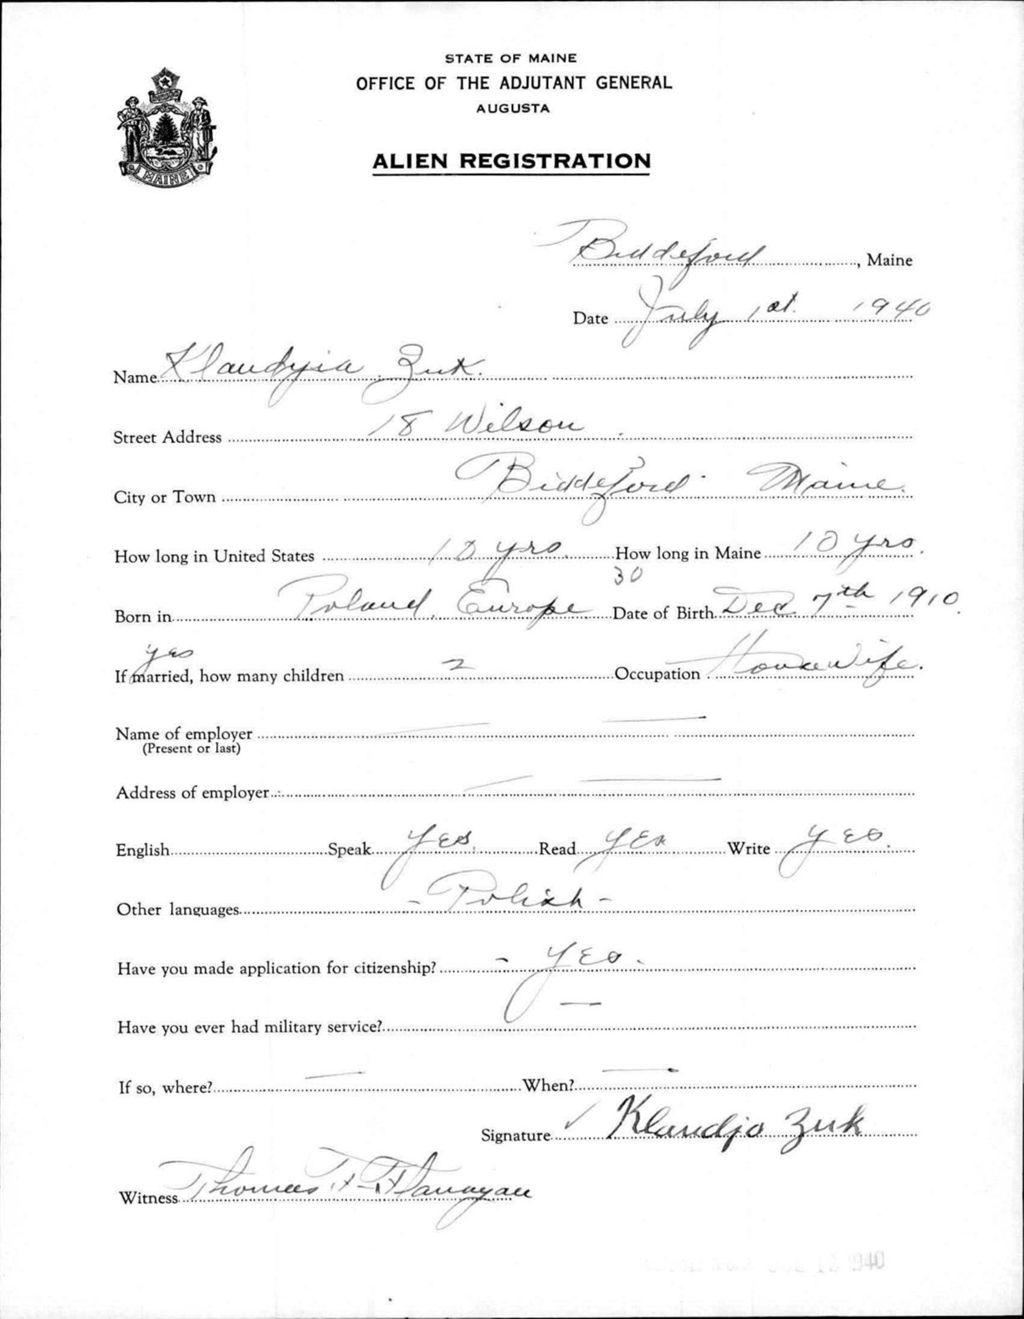 STATE OF MAINE
OFFICE OF THE ADJUTANT GENERAL
AUGUSTA
MAINE
ALIEN REGISTRATION
Biddeford, Maine
Date July 1st. 1940
Name Klaudyia Zuk.
Street Address 18 Wilson
City or Town Biddeford Maine.
How long in United States 10 yrs. How long in Maine 10 yrs.
30
Born in Poland, Europe Date of Birth Dec 7th 1910.
yes
If married, how many children 2 Occupation Housewife.
Name of employer — —
(Present or last)
Address of employer — —
English Speak Yes. Read Yes Write Yes.
Other languages - Polish -
Have you made application for citizenship? - Yes.
Have you ever had military service? —
If so, where? — When? —
Signature Klaudja Zuk
Witness Thomas F. Flanagan